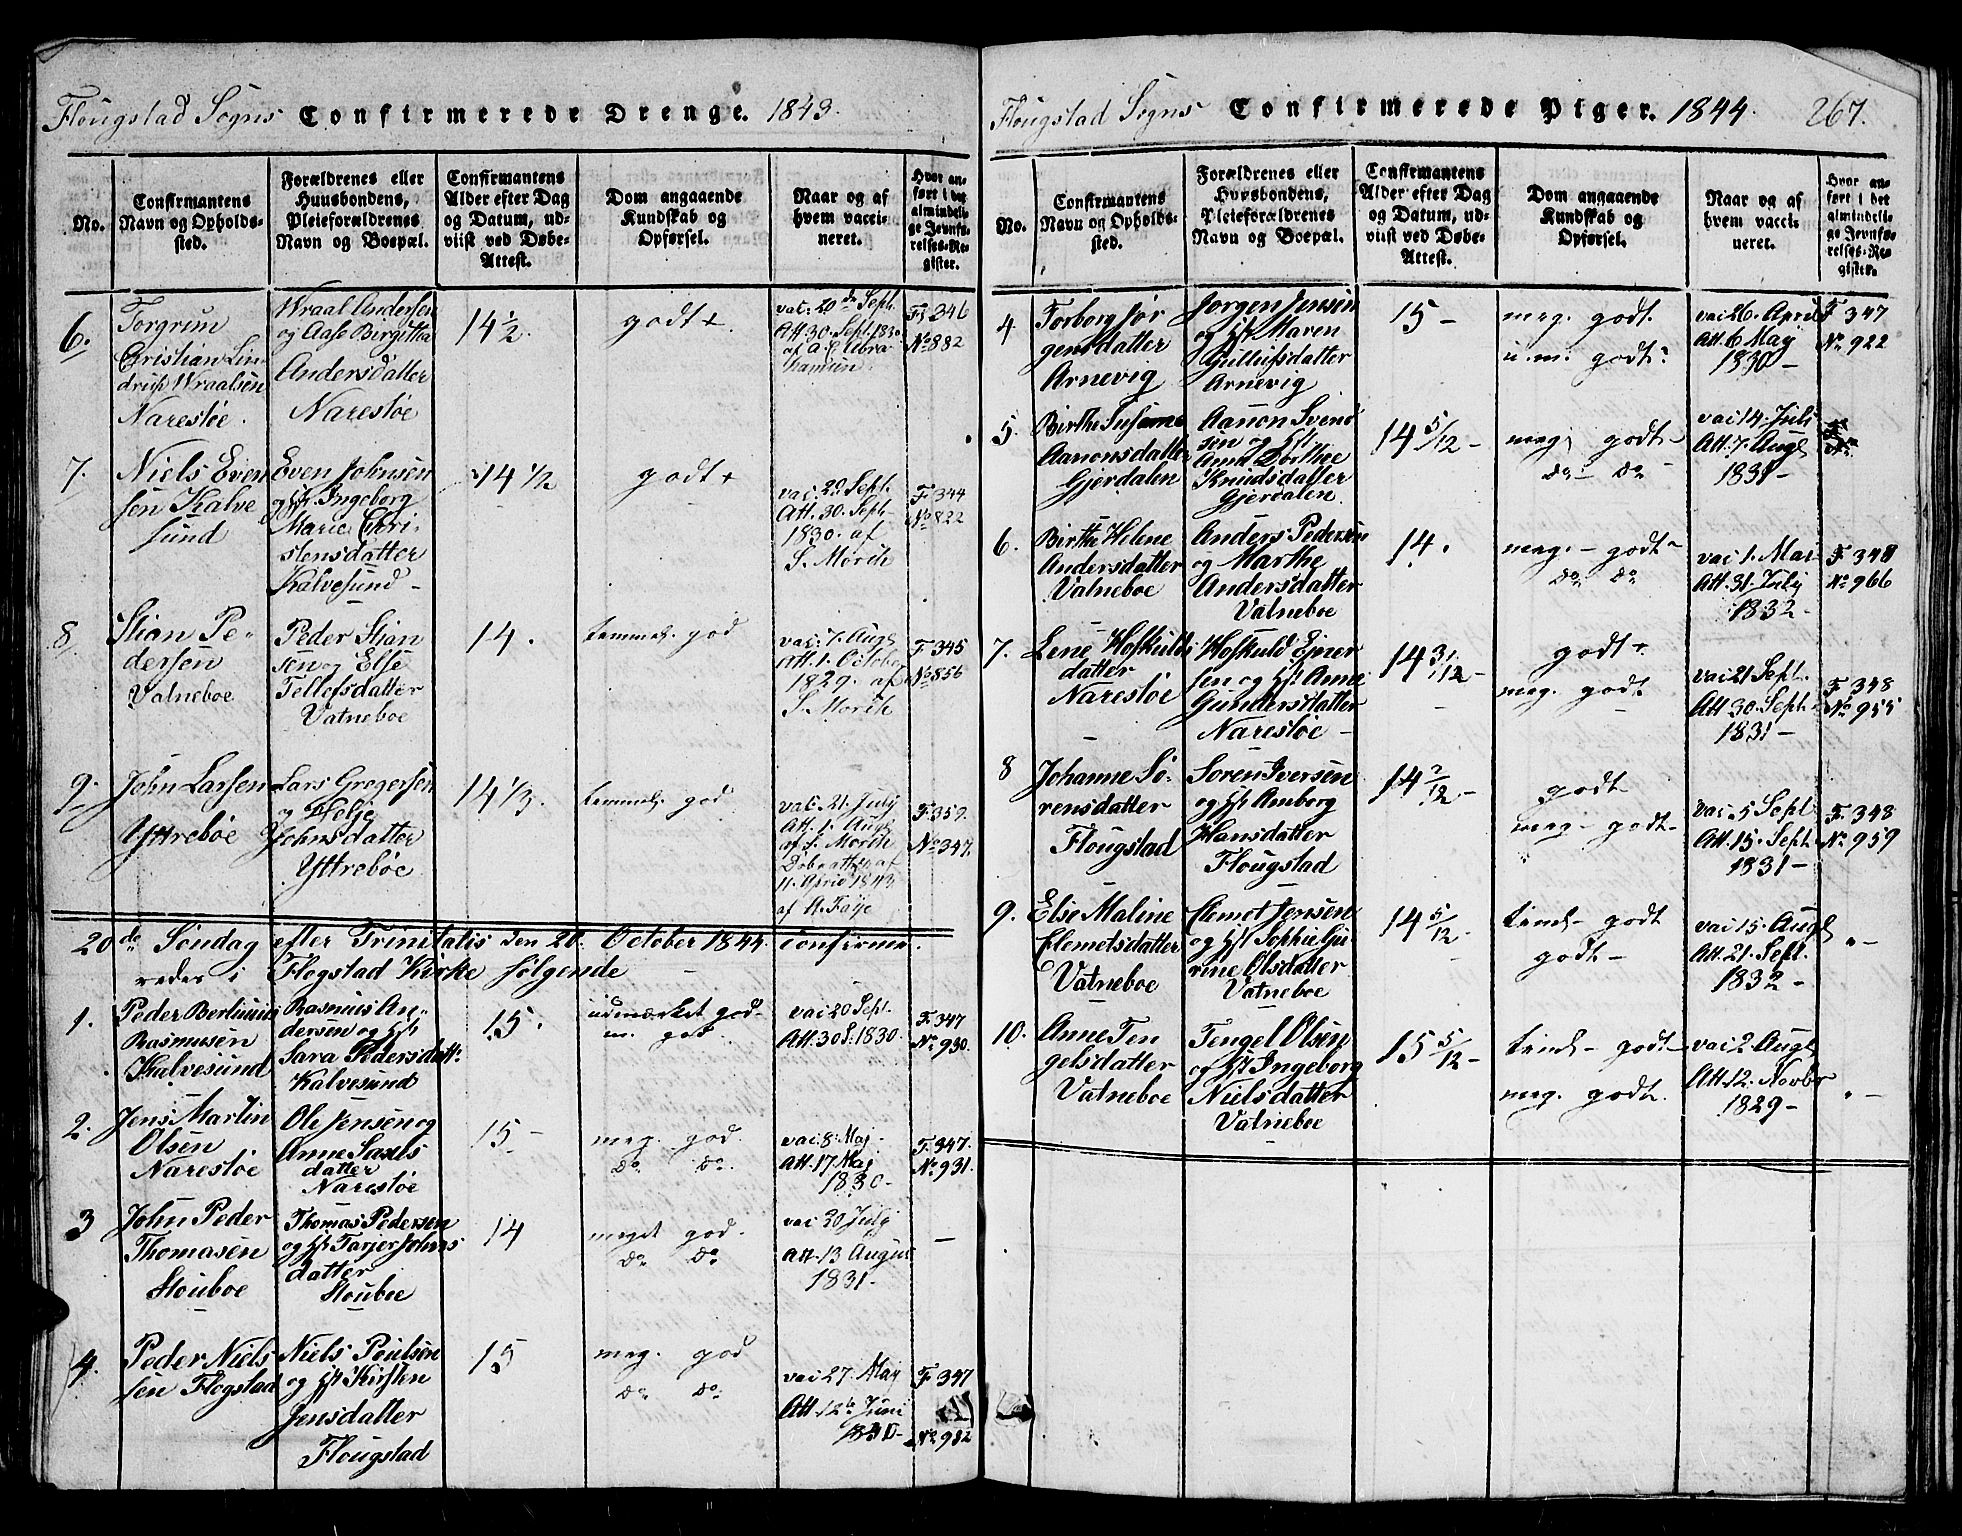 Flougstad Sogns Confirmerede Drenge. 1843.
No.
Confirmantens
Navn og Opholds-
sted.
Forældrenes eller
Huusbondens,
Pleieforældrenes
Navn og Boepæl.
Confirmantens
Alder efter Dag
og Datum, ud-
viist ved Døbe-
Attest.
Dom angaaende
Kundskab og
Opførsel.
Naar og af
hvem vacci-
neret.
Hvor an-
ført i det
almindeli-
ge Jevnfø-
relses-Re-
gister.
6.
Torgrim
Christian Lin
druß Wraalsen
Narestøe.
Wraal Andersen
og Aase Birgitha
Andersdatter
Narestøe
14 ½
godt +.
vac: 20de Sept.
Att. 30. Sept. 1830
af
F 346
No 882
7.
Niels Even
sen Kalve
sund
Even Johnsen
og Hst Ingeborg
Marie Chri-
stensdatter
Kalvesund -
14 1/2
godt +
vac. 20. Sept.
Att. 30. Sept
1830. af
S. Morch
F. 344
No 822
8.
Stian Pe-
dersen
Vatneboe
Peder Stian
sen og Else
Tellefsdatter
Vatneboe
14.
temmel. god
vac. 7. Augt
Att. 1. October
1829. af
S. Morch
F 345
No 856
9.
John Larsen
Yttrebøe
Lars Gregersen
og
Johnsdatter
Yttrebøe
14 1/3.
temmel. god
vac. 21. July
Att. 1. Augt
af S. Morch
Døbeattest af
11. April 1843
af A. Faye
F. 352.
No 347.
20de Søndag efter Trinitatis den 20. October 1844. confirme-
redes i Flogstad Kirke følgende
1.
Peder Berluinig
Rasmusen
Kalvesund
Rasmus An-
dersen og Hst
Sara Pedersdattr
Kalvesund
15.
udmærket god-
m. god
vac 20 Sept.
Att. 30 S. 1830.
F. 347
No. 930.
2.
Jens Martin
Olsen
Narestøe
Ole Jensen og
Anne Saxls
datter
Narestøe
15 -
meg. god.
Do Do.
vac. 8. Maj -
Att. 17 Maj
1830 -
F. 347.
No. 931.
3
John Peder
Thomasen
Stouboe
Thomas Pedersen
og Hst Tarjer Johns
datter
Stouboe
14
meget god.
Do Do
vac 30 July
Att. 13 August
1831 -
-
4.
Peder Niels
sen Flogstad
Niels Poulsen
og Hst Kirsten
Jensdatter
Flougstad
15
meg. god
Do Do
vac 27. Maj
Att. 12te Juni
1830 -
F 347
No 932
Flougstad Sogns Confirmerede Piger. 1844. 267.
No.
Confirmantens
Navn og Opholds-
sted.
Forældrenes eller
Huusbondens,
Pleieforældrenes
Navn og Boepæl.
Confirmantens
Alder efter Dag
og Datum, ud-
viist ved Døbe-
Attest.
Dom angaaende
Kundskab og
Opførsel.
Naar og af
hvem vacci-
neret.
Hvor an-
ført i det
almindeli-
ge Jevnfø-
relses-Re-
gister.
4
Torborg Jør
gensdatter
Arnevig
Jørgen Jensen
og Hst Maren
Gullufsdatter
Arnevig
15 -
meg. godt.
u. m. godt.
vac 26. April
Att. 6 Maj
1830 -
F 347
No 922
5.
Birthe Susanne
Aanonsdatter
Gjerdalen
Aanon Svend
sen og Hst
Anne Dorthee
Knudsdatter
Gjerdalen.
14 5/12 -
meg. godt -
Do - Do -
vac 14. Juli
Att. 7. Augt
1831 -
F.
No
6.
Birthe Helene
Andersdatter
Vatneboe
Anders Pedersen
og Marthe
Andersdatter
Vatneboe
14.
meg. - godt -
Do Do
vac 1. Mai
Att. 31. July
1832 -
F 348
No 966
7.
Lene Hoskulds
datter
Narestøe
Hoskuld Ejner
sen og Hst Anne
Gundersdatter
Narestøe -
14 3/12 -
godt +.
meg. godt.
vac 21 Sept.
Att. 30. Sept.
1831 -
F. 348
No. 955
8
Johanne Sø-
rensdatter
Flougstad
Søren Iversen
og Hst Amborg
Hansdatter
Flougstad
14 2/12 -
godt
meg - godt.
vac 5 Sept
Att. 15. Sept.
1831 -
F. 348
No. 959
9.
Else Maline
Clemetsdatter
Vatneboe
Clemet Jensen
og Hst Sophie Gu
rine Olsdatter
Vatneboe
14 5/12 -
tend - godt
godt -
vac 15. Augt
Att. 21. Sept.
1832 -
" -
10.
Anne Ten
gelsdatter
Vatneboe
Tengel Olsen
og Hst Ingeborg
Nielsdatter
Vatneboe
15 5/12 -
tend - godt -
meg. godt.
vac 2. Augt
Att. 12. Novbr
1829 -
" -